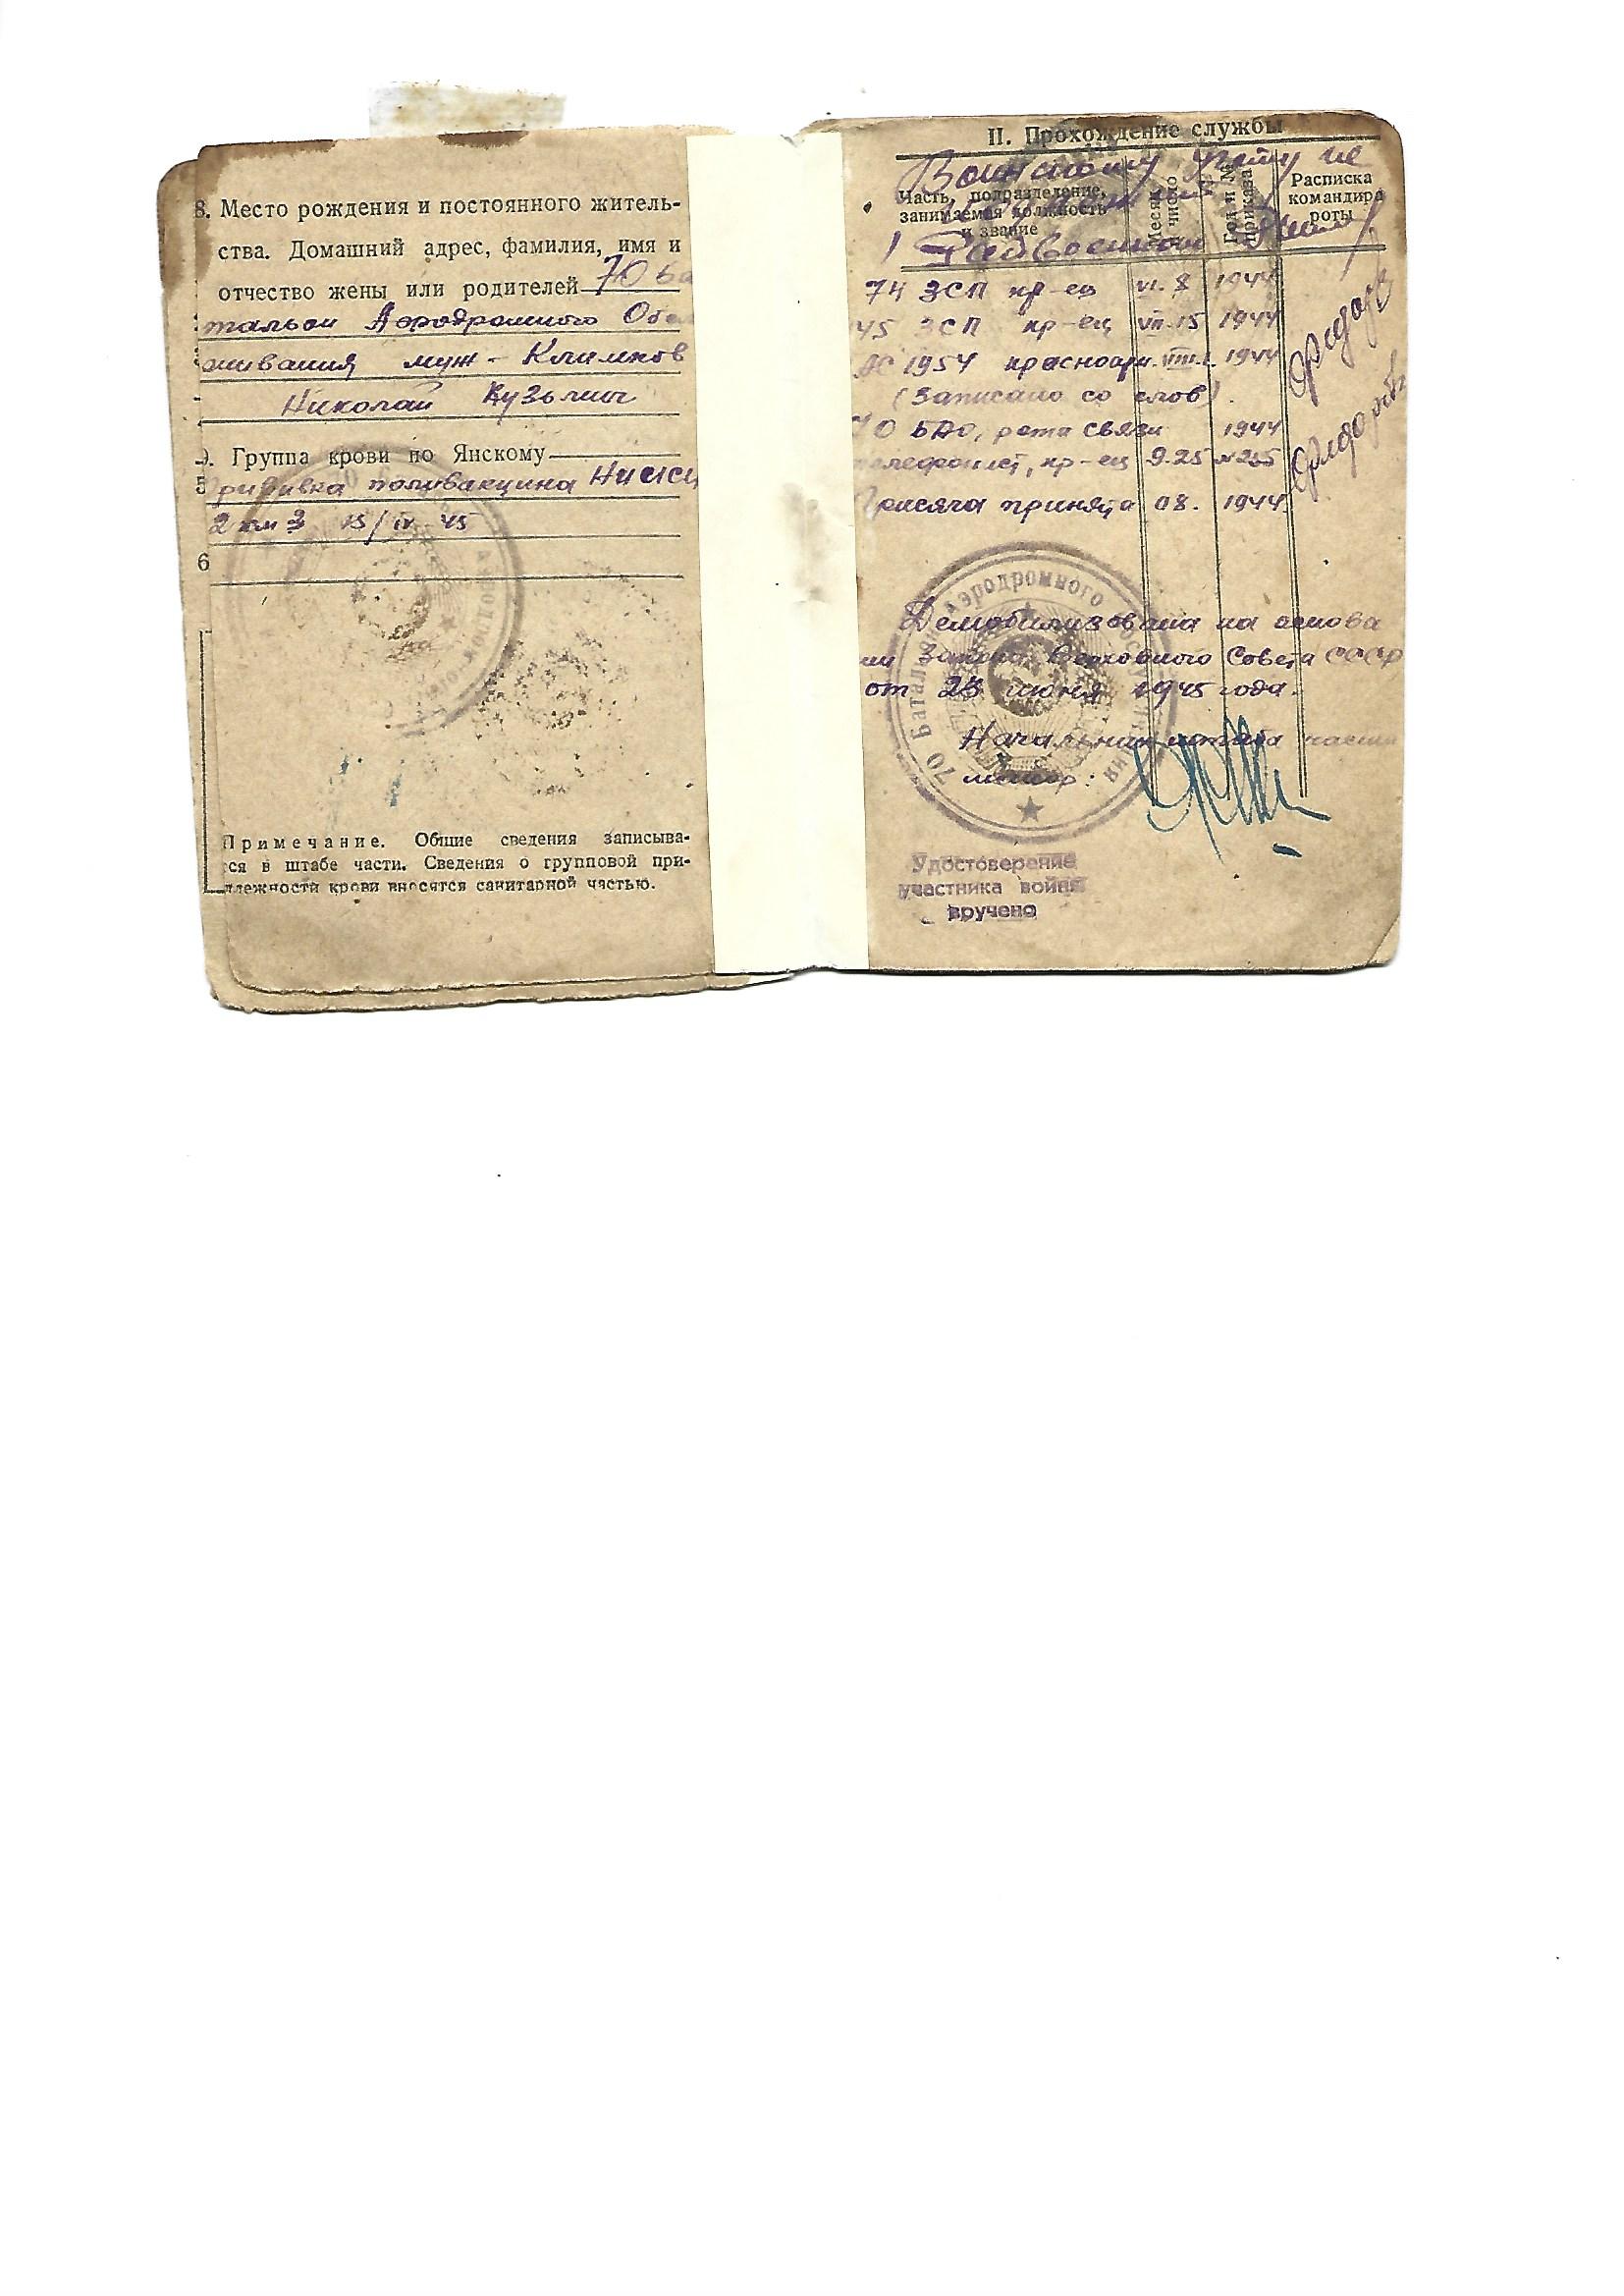 8. Место рождения и постоянного житель-
ства. Домашний адрес, фамилия, имя и
отчество жены или родителей 70 ба
тальон Аэродромного Обсл
живания муж - Климков
Николай Кузьмич
9. Группа крови по Янскому
5
прививка поливакцина НИИСИ
2 см 3 15/IV 45
6
Примечание. Общие сведения записыва-
ся в штабе части. Сведения о групповой при-
длежности крови вносятся санитарной частью.
II. Прохождение службы
Воинскому учету не
Часть, подразделение, занимаемая должность и звание
Месяц и число
Год и № приказа
Расписка командира роты
Райвоенком
74 ЗСП кр-ец VI. 8 1944
45 ЗСП кр-ец VII. 15 1944
1954 красноарм. VIII.1. 1944
(Записано со слов)
70 БАО, рота связи 1944
телефонист, кр-ец 9.25 №255
Присяга принята 08. 1944
Демобилизована на основа
нии Закона Верховного Совета СССР
от 23 июня 1945 года.
Начальник штаба части
майор:
70 Батальон Аэродромного Обслуживания
Удостоверение
участника войны
вручено